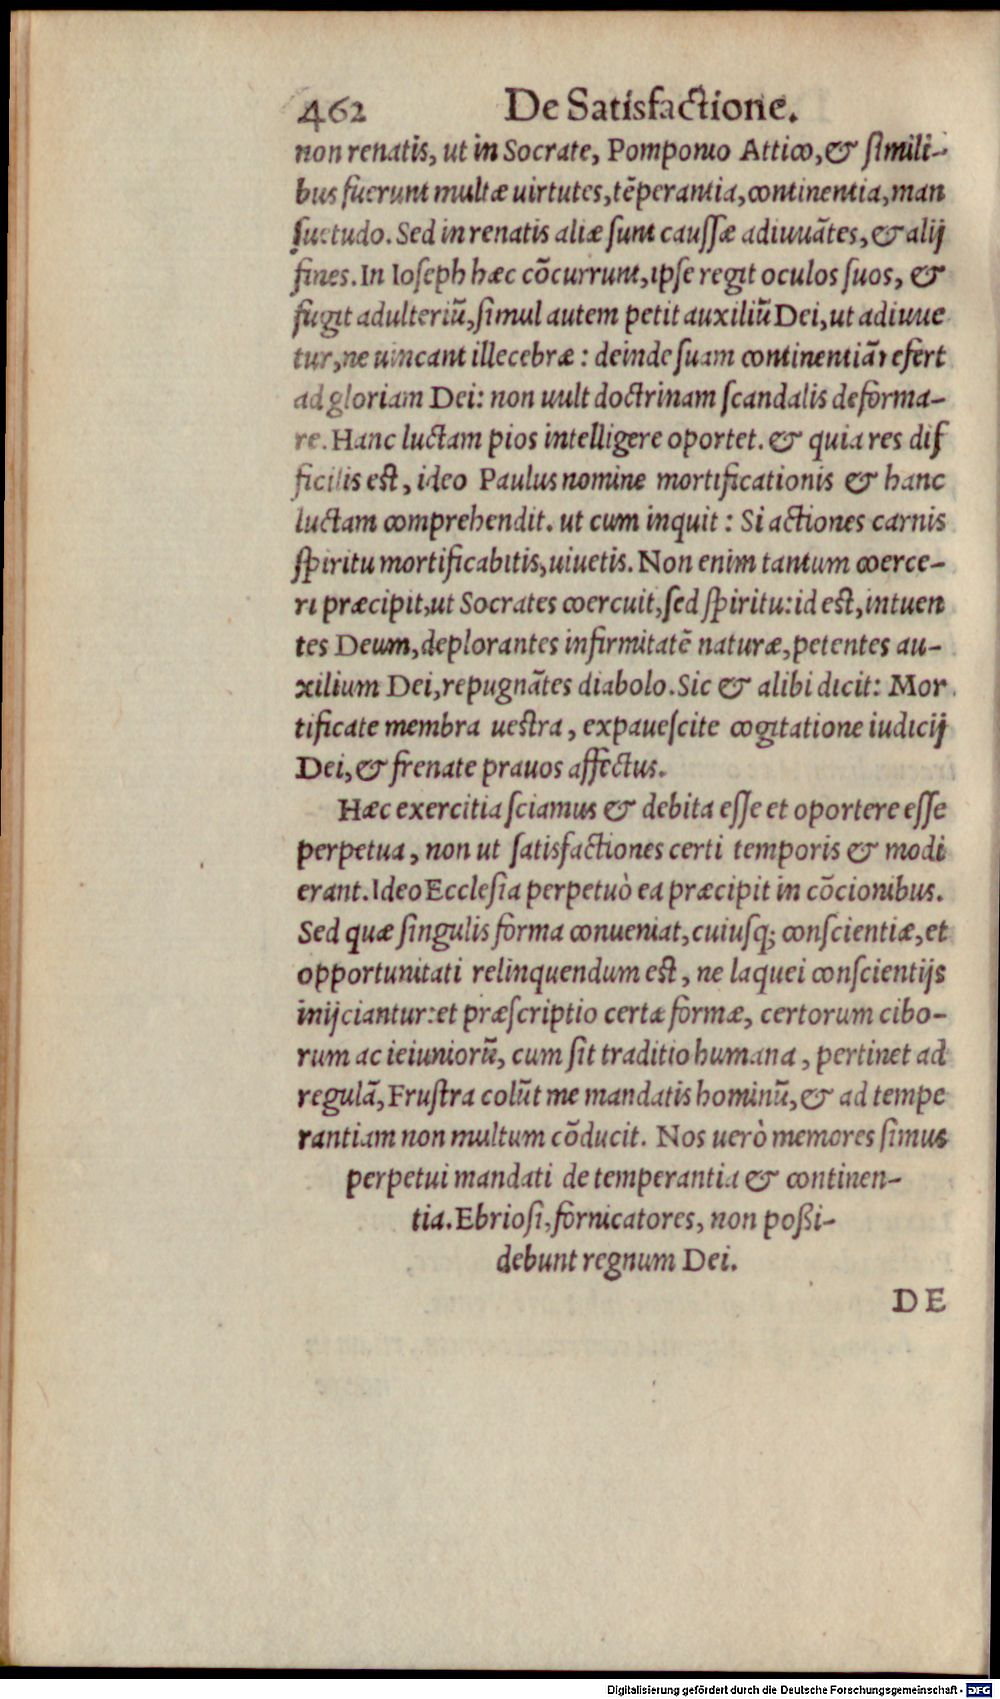 462 De Satisfactione.
non renatis, ut in Socrate, Pomponio Attico, & simili-
bus fuerunt multæ uirtutes, tẽperantia, continentia, man
suetudo. Sed in renatis aliæ sunt caussæ adiuuãtes, & alij
fines. In Ioseph hæc cõcurrunt, ipse regit oculos suos, &
fugit adulteriũ, simul autem petit auxiliũ Dei, ut adiuue
tur, ne uincant illecebræ: deinde suam continentiã refert
ad gloriam Dei: non uult doctrinam scandalis deforma-
re. Hanc luctam pios intelligere oportet. & quia res dif
ficilis est, ideo Paulus nomine mortificationis & hanc
luctam comprehendit. ut cum inquit: Si actiones carnis
spiritu mortificabitis, uiuetis. Non enim tantum coerce-
ri præcipit, ut Socrates coercuit, sed spiritu: id est, intuen
tes Deum, deplorantes infirmitatẽ naturæ, petentes au-
xilium Dei, repugnãtes diabolo. Sic & alibi dicit: Mor
tificate membra uestra, expauescite cogitatione iudicij
Dei, & frenate prauos affectus.
Hæc exercitia sciamus & debita esse et oportere esse
perpetua, non ut satisfactiones certi temporis & modi
erant. Ideo Ecclesia perpetuò ea præcipit in cõcionibus.
Sed quæ singulis forma conueniat, cuiusq; conscientiæ, et
opportunitati relinquendum est, ne laquei conscientijs
inijciantur: et præscriptio certæ formæ, certorum cibo-
rum ac ieiuniorũ, cum sit traditio humana, pertinet ad
regulã, Frustra colũt me mandatis hominũ, & ad tempe
rantiam non multum cõducit. Nos uerò memores simus
perpetui mandati de temperantia & continen-
tia. Ebriosi, fornicatores, non poßi-
debunt regnum Dei.
DE
Digitalisierung gefördert durch die Deutsche Forschungsgemeinschaft - DFG